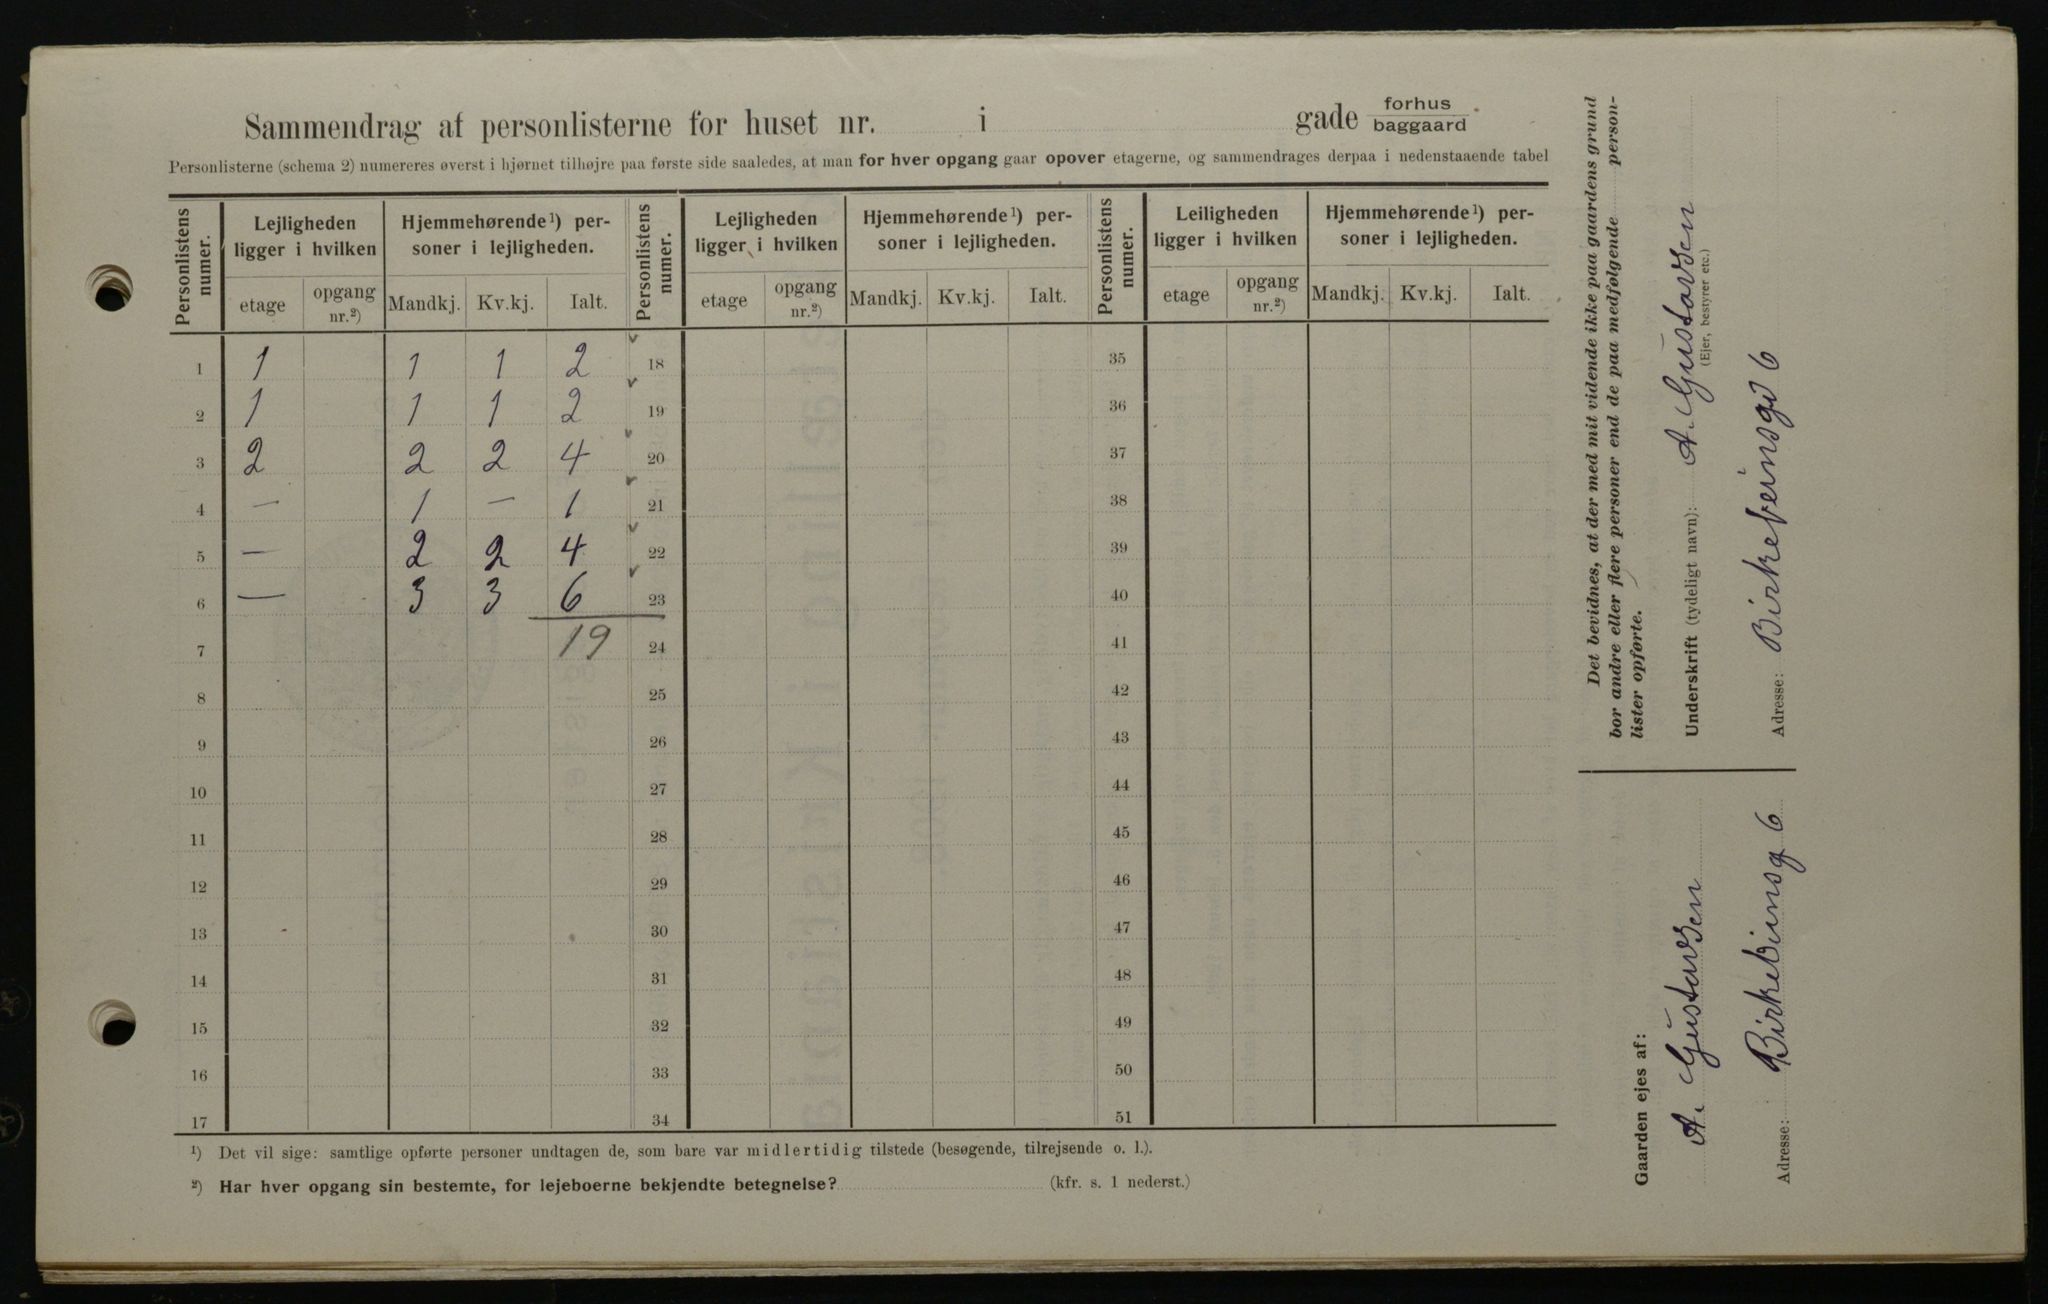 Sammendrag af personlisterne for huset nr. i gade forhus baggaard
Personlisterne (schema 2) numereres øverst i hjørnet tilhøjre paa første side saaledes, at man for hver opgang gaar opover etagerne, og sammendrages derpaa i nedenstaaende tabel
Personlistens numer. Lejligheden ligger i hvilken Hjemmehørende¹) personer i lejligheden. Personlistens numer. Lejligheden ligger i hvilken Hjemmehørende¹) personer i lejligheden. Personlistens numer. Leiligheden ligger i hvilken Hjemmehørende¹) personer i lejligheden.
etage opgang nr.²) Mandkj. Kv.kj. Ialt. etage opgang nr.²) Mandkj. Kv.kj. Ialt. etage opgang nr.²) Mandkj. Kv.kj. Ialt.
1 1 1 1 2 18 35
2 1 1 1 2 19 36
3 2 2 2 4 20 37
4 — 1 — 1 21 38
5 — 2 2 4 22 39
6 — 3 3 6 23 40
7 19 24 41
8 25 42
9 26 43
10 27 44
11 28 45
12 29 46
13 30 47
14 31 48
15 32 49
16 33 50
17 34 51
¹) Det vil sige: samtlige opførte personer undtagen de, som bare var midlertidig tilstede (besøgende, tilrejsende o. l.).
²) Har hver opgang sin bestemte, for lejeboerne bekjendte betegnelse? (kfr. s. 1 nederst.)
Det bevidnes, at der med mit vidende ikke paa gaardens grund
bor andre eller flere personer end de paa medfølgende person-
lister opførte.
Underskrift (tydeligt navn): A. Gustavsen
(Ejer, bestyrer etc.)
Adresse: Birkebeinsgd 6
Gaarden ejes af:
A. Gustavsen
Adresse: Birkebeinsg 6